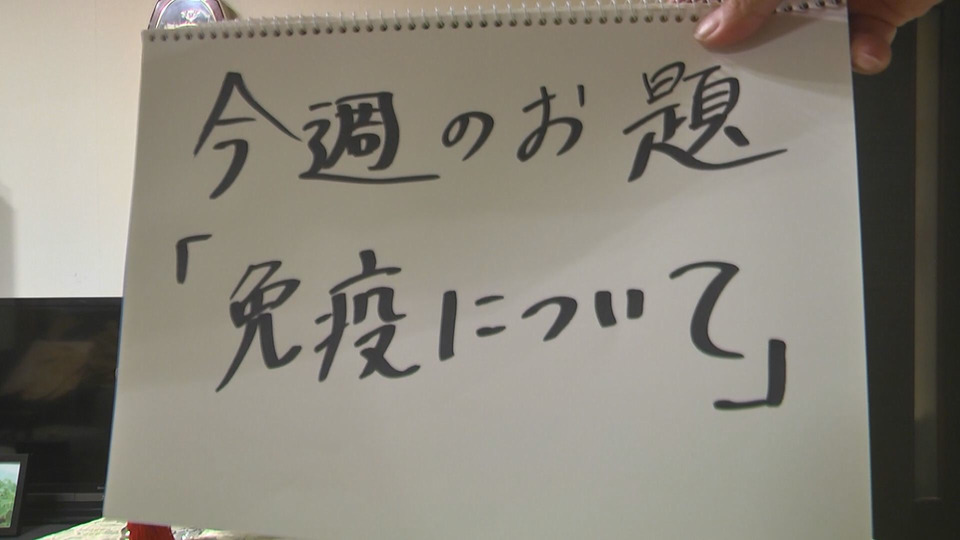 今週のお題
「免疫について」